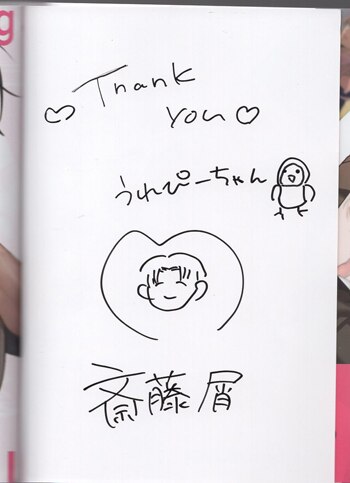 Thank
You
うれぴーちゃん
斎藤屑
g